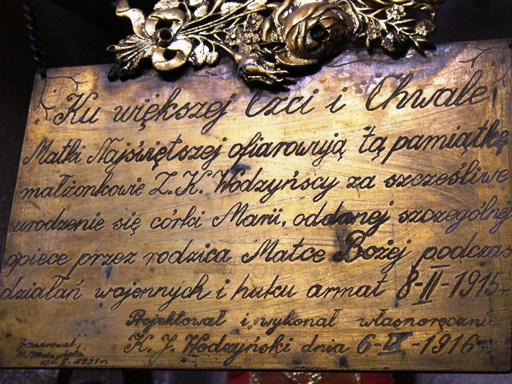 Ku większej Czci i Chwale
Matki Najświętszej ofiarowują tą pamiątkę
małżonkowie Z. K. Wodzyńscy za szczęśliwe
urodzenie się córki Marii, oddanej szczególnej
opiece przez rodzica Matce Bożej podczas
działań wojennych i huku armat 8-II-1915r.
Projektował i wykonał własnoręcznie
K. J. Wodzyński dnia 6-IX-1916r.